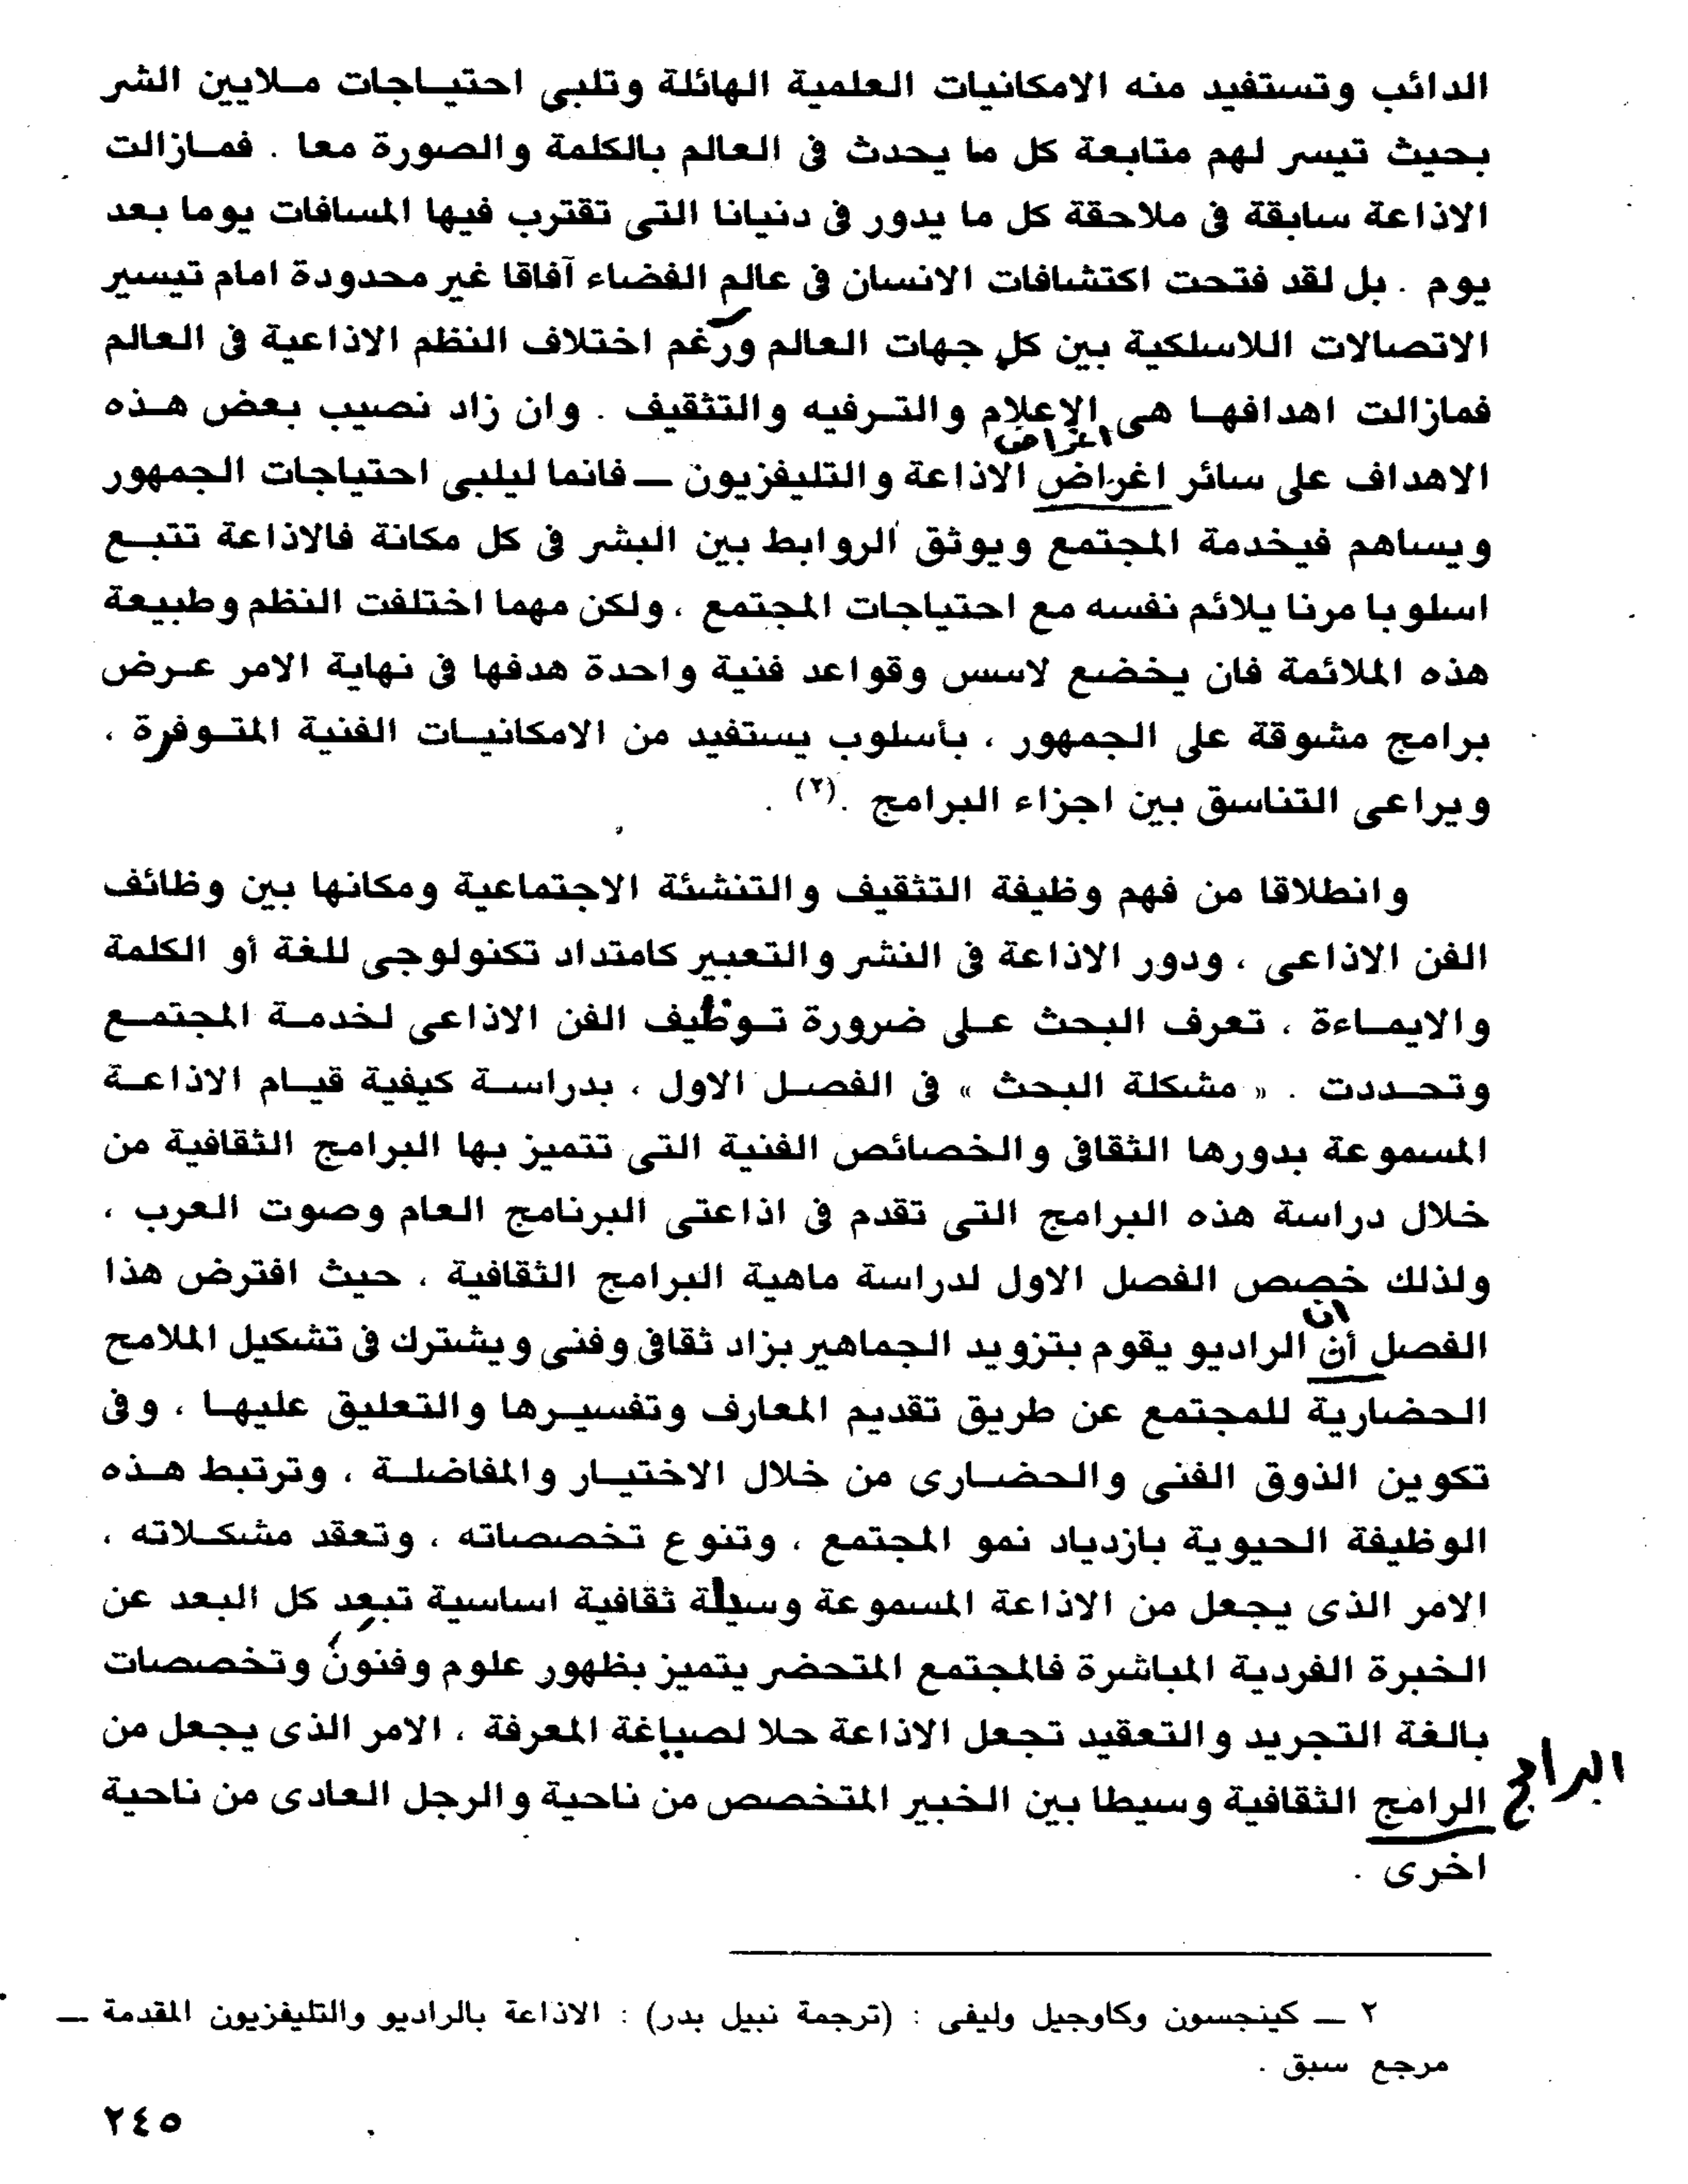 الدائب وتستفيد منه الامكانيات العلمية الهائلة وتلبى احتياجات ملايين الشر
بحيث تيسر لهم متابعة كل ما يحدث فى العالم بالكلمة والصورة معا . فمازالت
الاذاعة سابقة فى ملاحقة كل ما يدور فى دنيانا التى تقترب فيها المسافات يوما بعد
يوم . بل لقد فتحت اكتشافات الانسان فى عالم الفضاء آفاقا غير محدودة امام تيسير
الاتصالات اللاسلكية بين كل جهات العالم ورغم اختلاف النظم الاذاعية فى العالم
فمازالت اهدافها هى الإعلام والترفيه والتثقيف . وان زاد نصيب بعض هذه
اغراض
الاهداف على سائر اغراض الاذاعة والتليفزيون — فانما ليلبى احتياجات الجمهور
ويساهم فيخدمة المجتمع ويوثق الروابط بين البشر فى كل مكانة فالاذاعة تتبع
اسلوبا مرنا يلائم نفسه مع احتياجات المجتمع ، ولكن مهما اختلفت النظم وطبيعة
هذه الملائمة فان يخضع لاسس وقواعد فنية واحدة هدفها فى نهاية الامر عرض
برامج مشوقة على الجمهور ، بأسلوب يستفيد من الامكانيات الفنية المتوفرة ،
ويراعى التناسق بين اجزاء البرامج .(٢) .
وانطلاقا من فهم وظيفة التثقيف والتنشئة الاجتماعية ومكانها بين وظائف
الفن الاذاعى ، ودور الاذاعة فى النشر والتعبير كامتداد تكنولوجى للغة أو الكلمة
والايماءة ، تعرف البحث على ضرورة توظيف الفن الاذاعى لخدمة المجتمع
وتحددت . « مشكلة البحث » فى الفصل الاول ، بدراسة كيفية قيام الاذاعة
المسموعة بدورها الثقافى والخصائص الفنية التى تتميز بها البرامج الثقافية من
خلال دراسة هذه البرامج التى تقدم فى اذاعتى البرنامج العام وصوت العرب ،
ولذلك خصص الفصل الاول لدراسة ماهية البرامج الثقافية ، حيث افترض هذا
ان
الفصل أن الراديو يقوم بتزويد الجماهير بزاد ثقافى وفنى ويشترك فى تشكيل الملامح
الحضارية للمجتمع عن طريق تقديم المعارف وتفسيرها والتعليق عليها ، وفى
تكوين الذوق الفنى والحضارى من خلال الاختيار والمفاضلة ، وترتبط هذه
الوظيفة الحيوية بازدياد نمو المجتمع ، وتنوع تخصصاته ، وتعقد مشكلاته ،
الامر الذى يجعل من الاذاعة المسموعة وسيلة ثقافية اساسية تبعد كل البعد عن
الخبرة الفردية المباشرة فالمجتمع المتحضر يتميز بظهور علوم وفنون وتخصصات
بالغة التجريد والتعقيد تجعل الاذاعة حلا لصياغة المعرفة ، الامر الذى يجعل من
البرامج
الرامج الثقافية وسيطا بين الخبير المتخصص من ناحية والرجل العادى من ناحية
اخرى .
٢ — كينجسون وكاوجيل وليفى : (ترجمة نبيل بدر) : الاذاعة بالراديو والتليفزيون المقدمة —
مرجع سبق .
٢٤٥